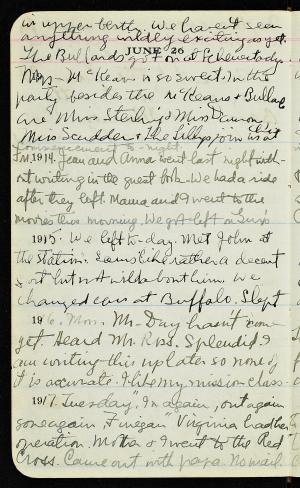 in upper berth. We haven't seen
anything wildly exciting as yet.
JUNE 26
The Bullards got on at Schenectady.
Mrs. McKean is so sweet. In the
party besides the McKeans & Bullards
are Miss Sterling Miss Dawson,
Miss Scudder & the Lillys join us at
Commencement to-night
1914. Jean and Anna went last night with-
out writing in the guest book. We had a ride
after they left. Mama and I went to the
movies this morning. We got left on
1915. We left to-day. Met John at
the station. Seems like rather a decent
sort but not wild about him. We
changed cars at Buffalo. Slept
1916. Mon. Mr. Day hasn't come
yet. Heard Mr. Ross. Splendid. I
am writing this up later so none of
it is accurate. I like my mission class.
1917. Tuesday. "In again, out again
gone again Finegan" Virginia had her
operation. Mother & I went to the Red
Cross. Came out with papa. No mail.